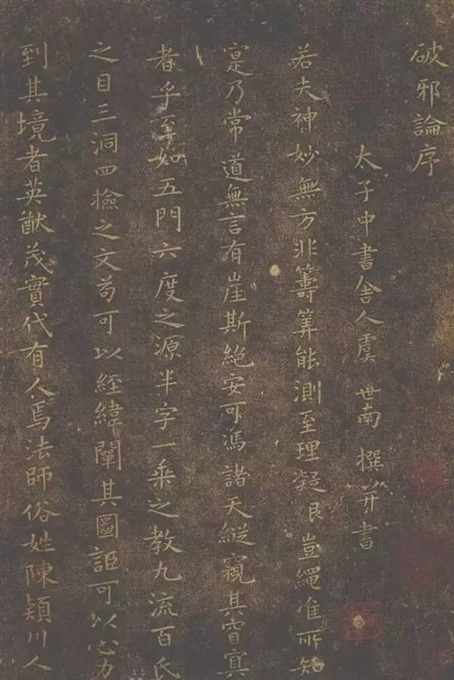 破邪論序
太子中書舍人虞世南撰并書
若夫神妙無方非籌筭能測至理凝邈豈繩准所知
寔乃常道無言有崖斯絕安可馮諸天縱窺其窅寞
者乎至如五門六度之源半字一乘之教九流百氏
之目三洞四撿之文茍可以經緯闡其圖詎可以心力
到其境者英猷茂實代有人焉法師俗姓陳潁川人